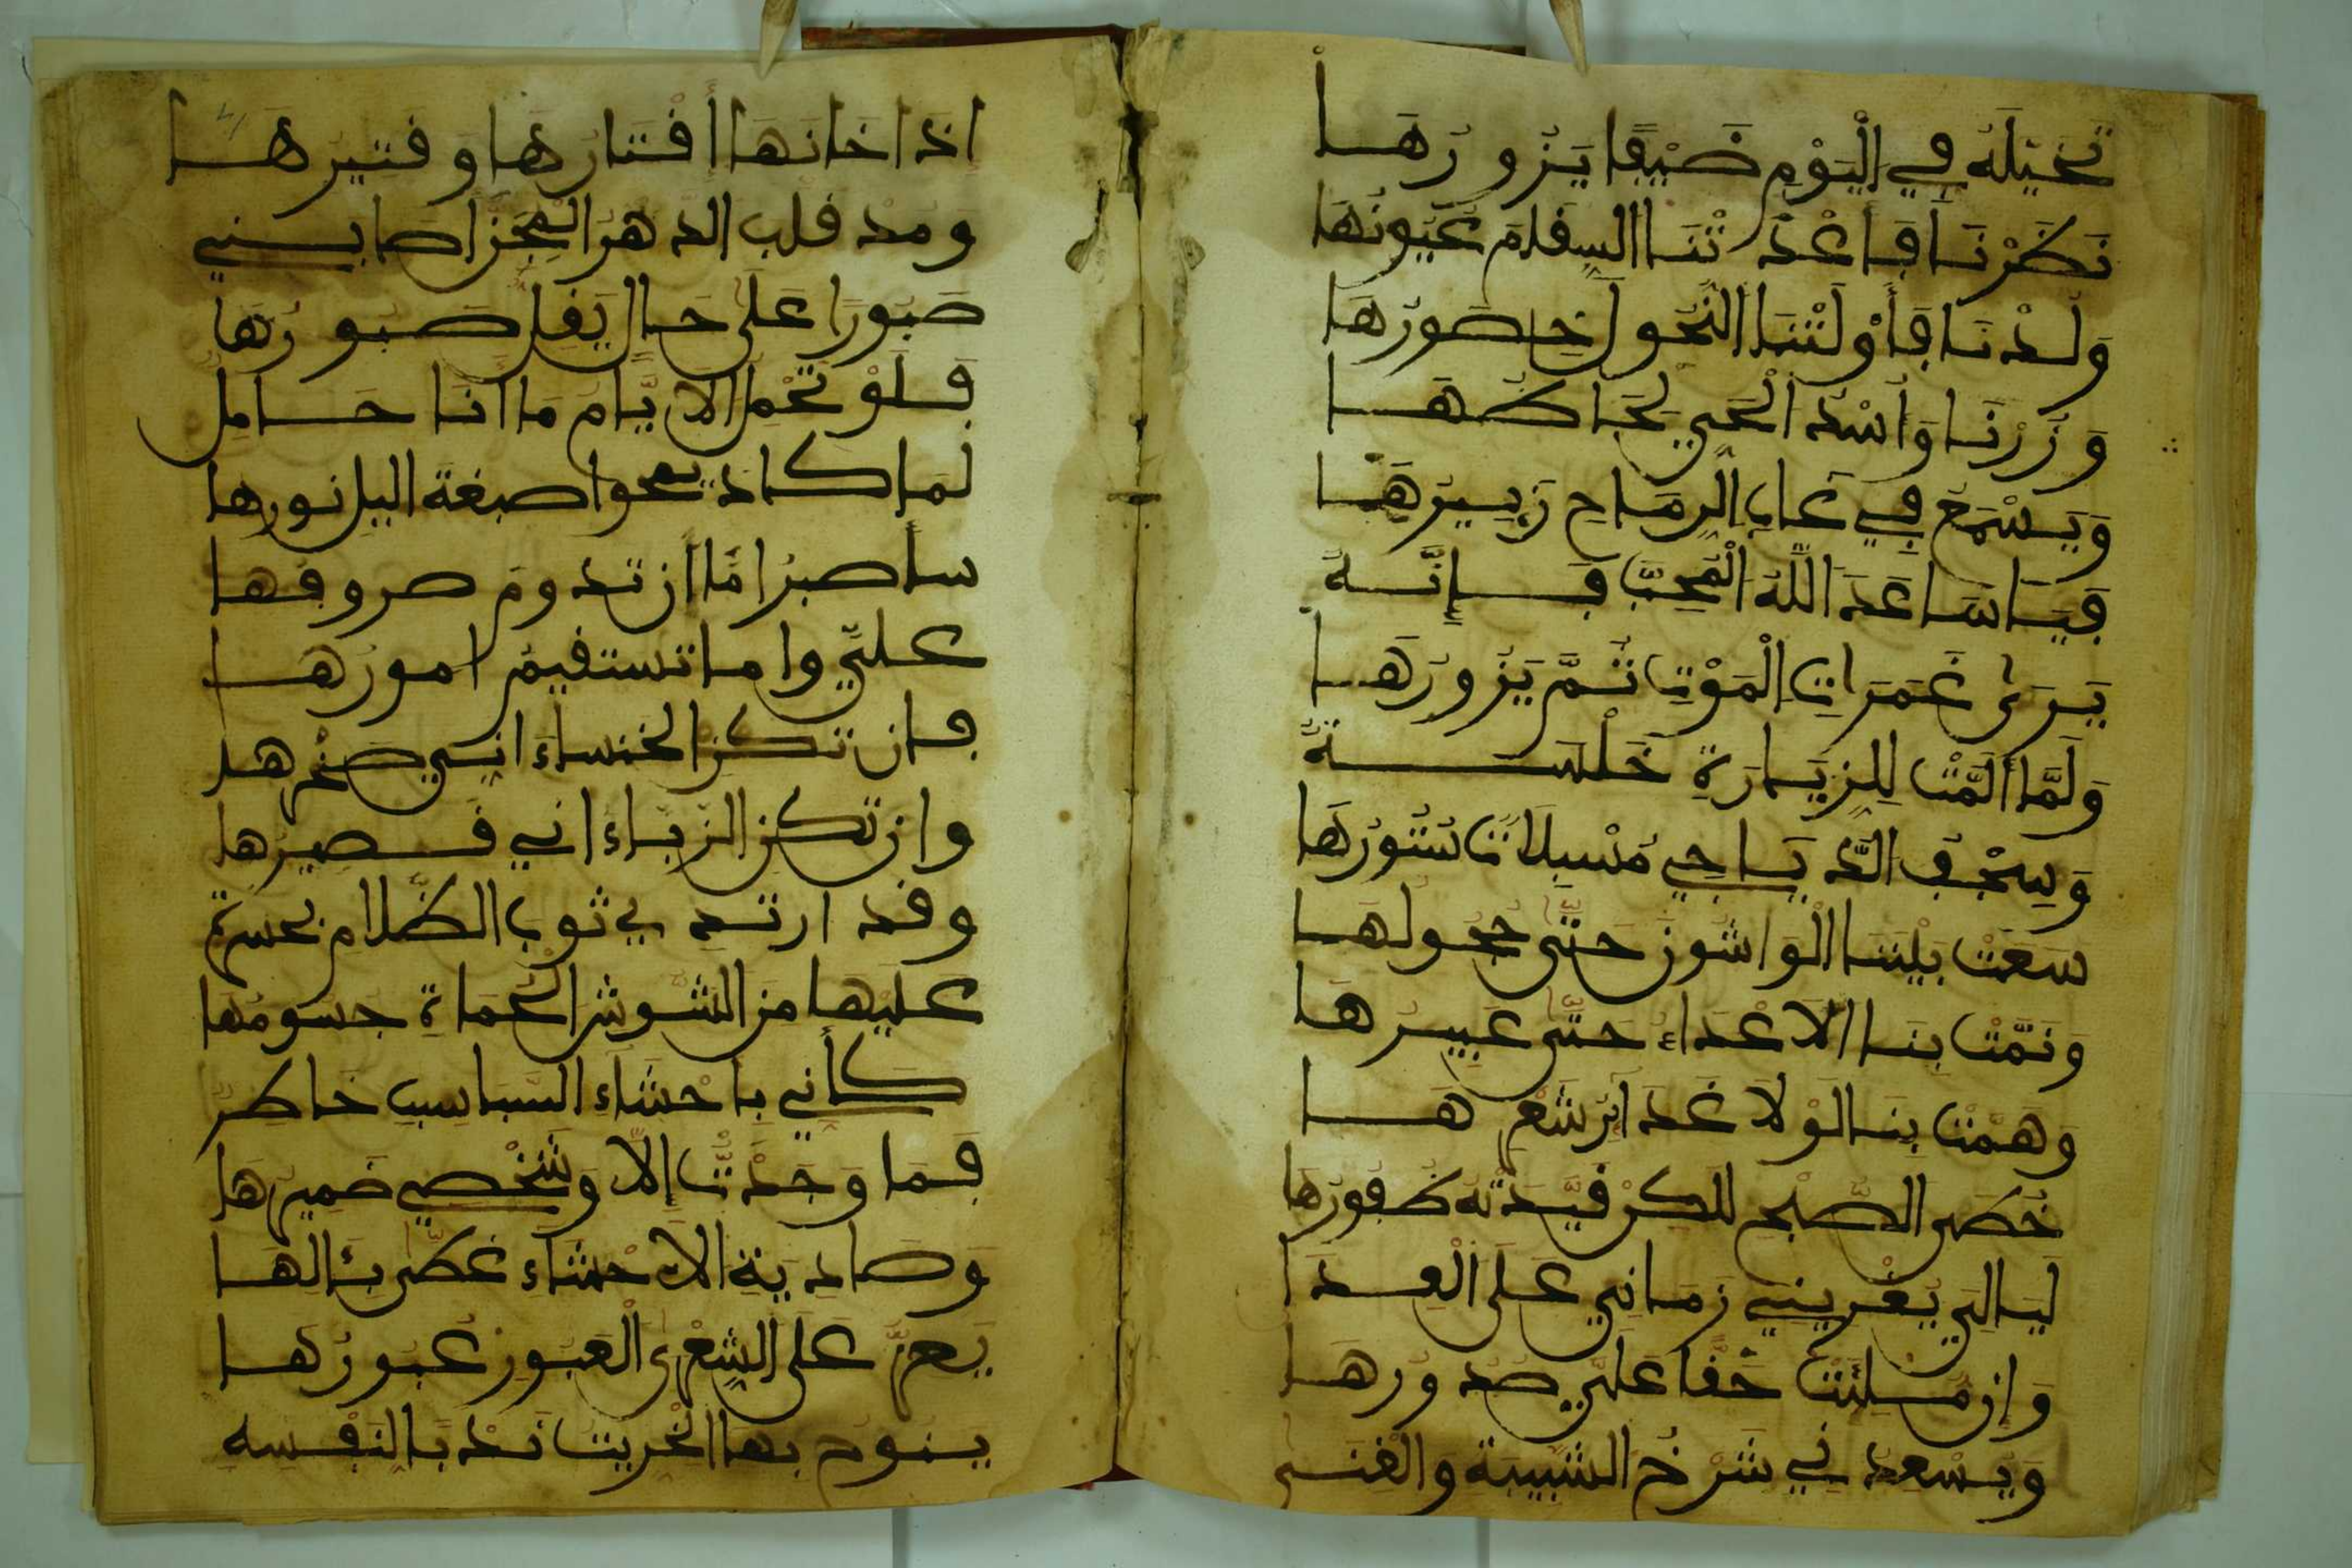 تَخَيَّلَهُ فِي الْيَوْمِ ضَيْفًا يَزُورُهَا
نَظَرْنَا فَأَعْدَتْنَا السِقَامَ عُيُونُهَا
وَلُذْنَا فَأَوْلَتْنَا النُّحُولَ خُصُورُهَا
وَزُرْنَا وَأُسْدُ الْحَيِّ لِحَاظُهَا
وَيَسْمَعُ فِي غَابِ الرِمَاحِ زَئِيرُهَا
فَيَا سَاعَدَ اللَّهُ الْمُحِبَّ فَإِنَّهُ
يَرَى غَمَرَاتِ الْمَوْتِ ثُمَّ يَزُورُهَا
وَلَمَّا أَلَمَّتْ لِلزِيَارَةِ خُلْسَةً
وَسِجْفُ الدَّيَاجِي مُسْبِلَاتٌ سُتُورُهَا
سَعَتْ بَيْنَنَا الْوَاشُونَ حَتَّى حُجُولُهَا
وَنَمَّتْ بِنَا الْأَعْدَاءُ حَتَّى عَبِيرُهَا
وَهَمَّتْ بِنَا لَوْلَا غَدَائِرُ شَعْرِهَا
خُطَى الصُّبْحِ لَكِنْ قَيَّدَتْهُ ظُفُورُهَا
لَيَالِي يُغْرِينِي زَمَانِي عَلَى الْعِدَا
وَإِنْ مُلِئَتْ حِقْدًا عَلَيَّ صُدُورُهَا
وَيُسْعِدُنِي شَرْخُ الشَّبِيبَةِ وَالْغِنَى
إذا خَانَهَا أَقْتَارُهَا وَقَتِيرُهَا
ومذ قلب الدهرُ الْمِجَنَّ أصابني
صَبُورًا عَلَى حَالٍ يَقِلُّ صَبُورُهَا
فَلَوْ تَحْمِلُ الأيَّامُ مَا أنَا حَامِلٌ
لما كاد يمحوا صبغة اليل نورها
سأصبر امَّا ان تدوم صروفها
عليّ واما تستقيم امورها
فان تكن الخنساء اني صَخْرها
وان تكن الزبّاء اني قصيرها
وقد ارتدي ثوب الظّلام بحسرة
عليها من الشوش الحماةِ جسومُها
كأني بِأحْشَاءِ السَّبَاسِبِ خاطِرٌ
فَمَا وَجَدَتْ إلّا وَشَخْصِي ضَمِيرُهَا
وَصَادِيَةِ الأحْشَاءِ غَضَّى بِئَالِهَا
يَعِزُّ عَلَى الشِّعْرَى الْعَبُورِ عُبُورُهَا
ينوح بها الخريت نَدْبًا لنَفْسِهِ